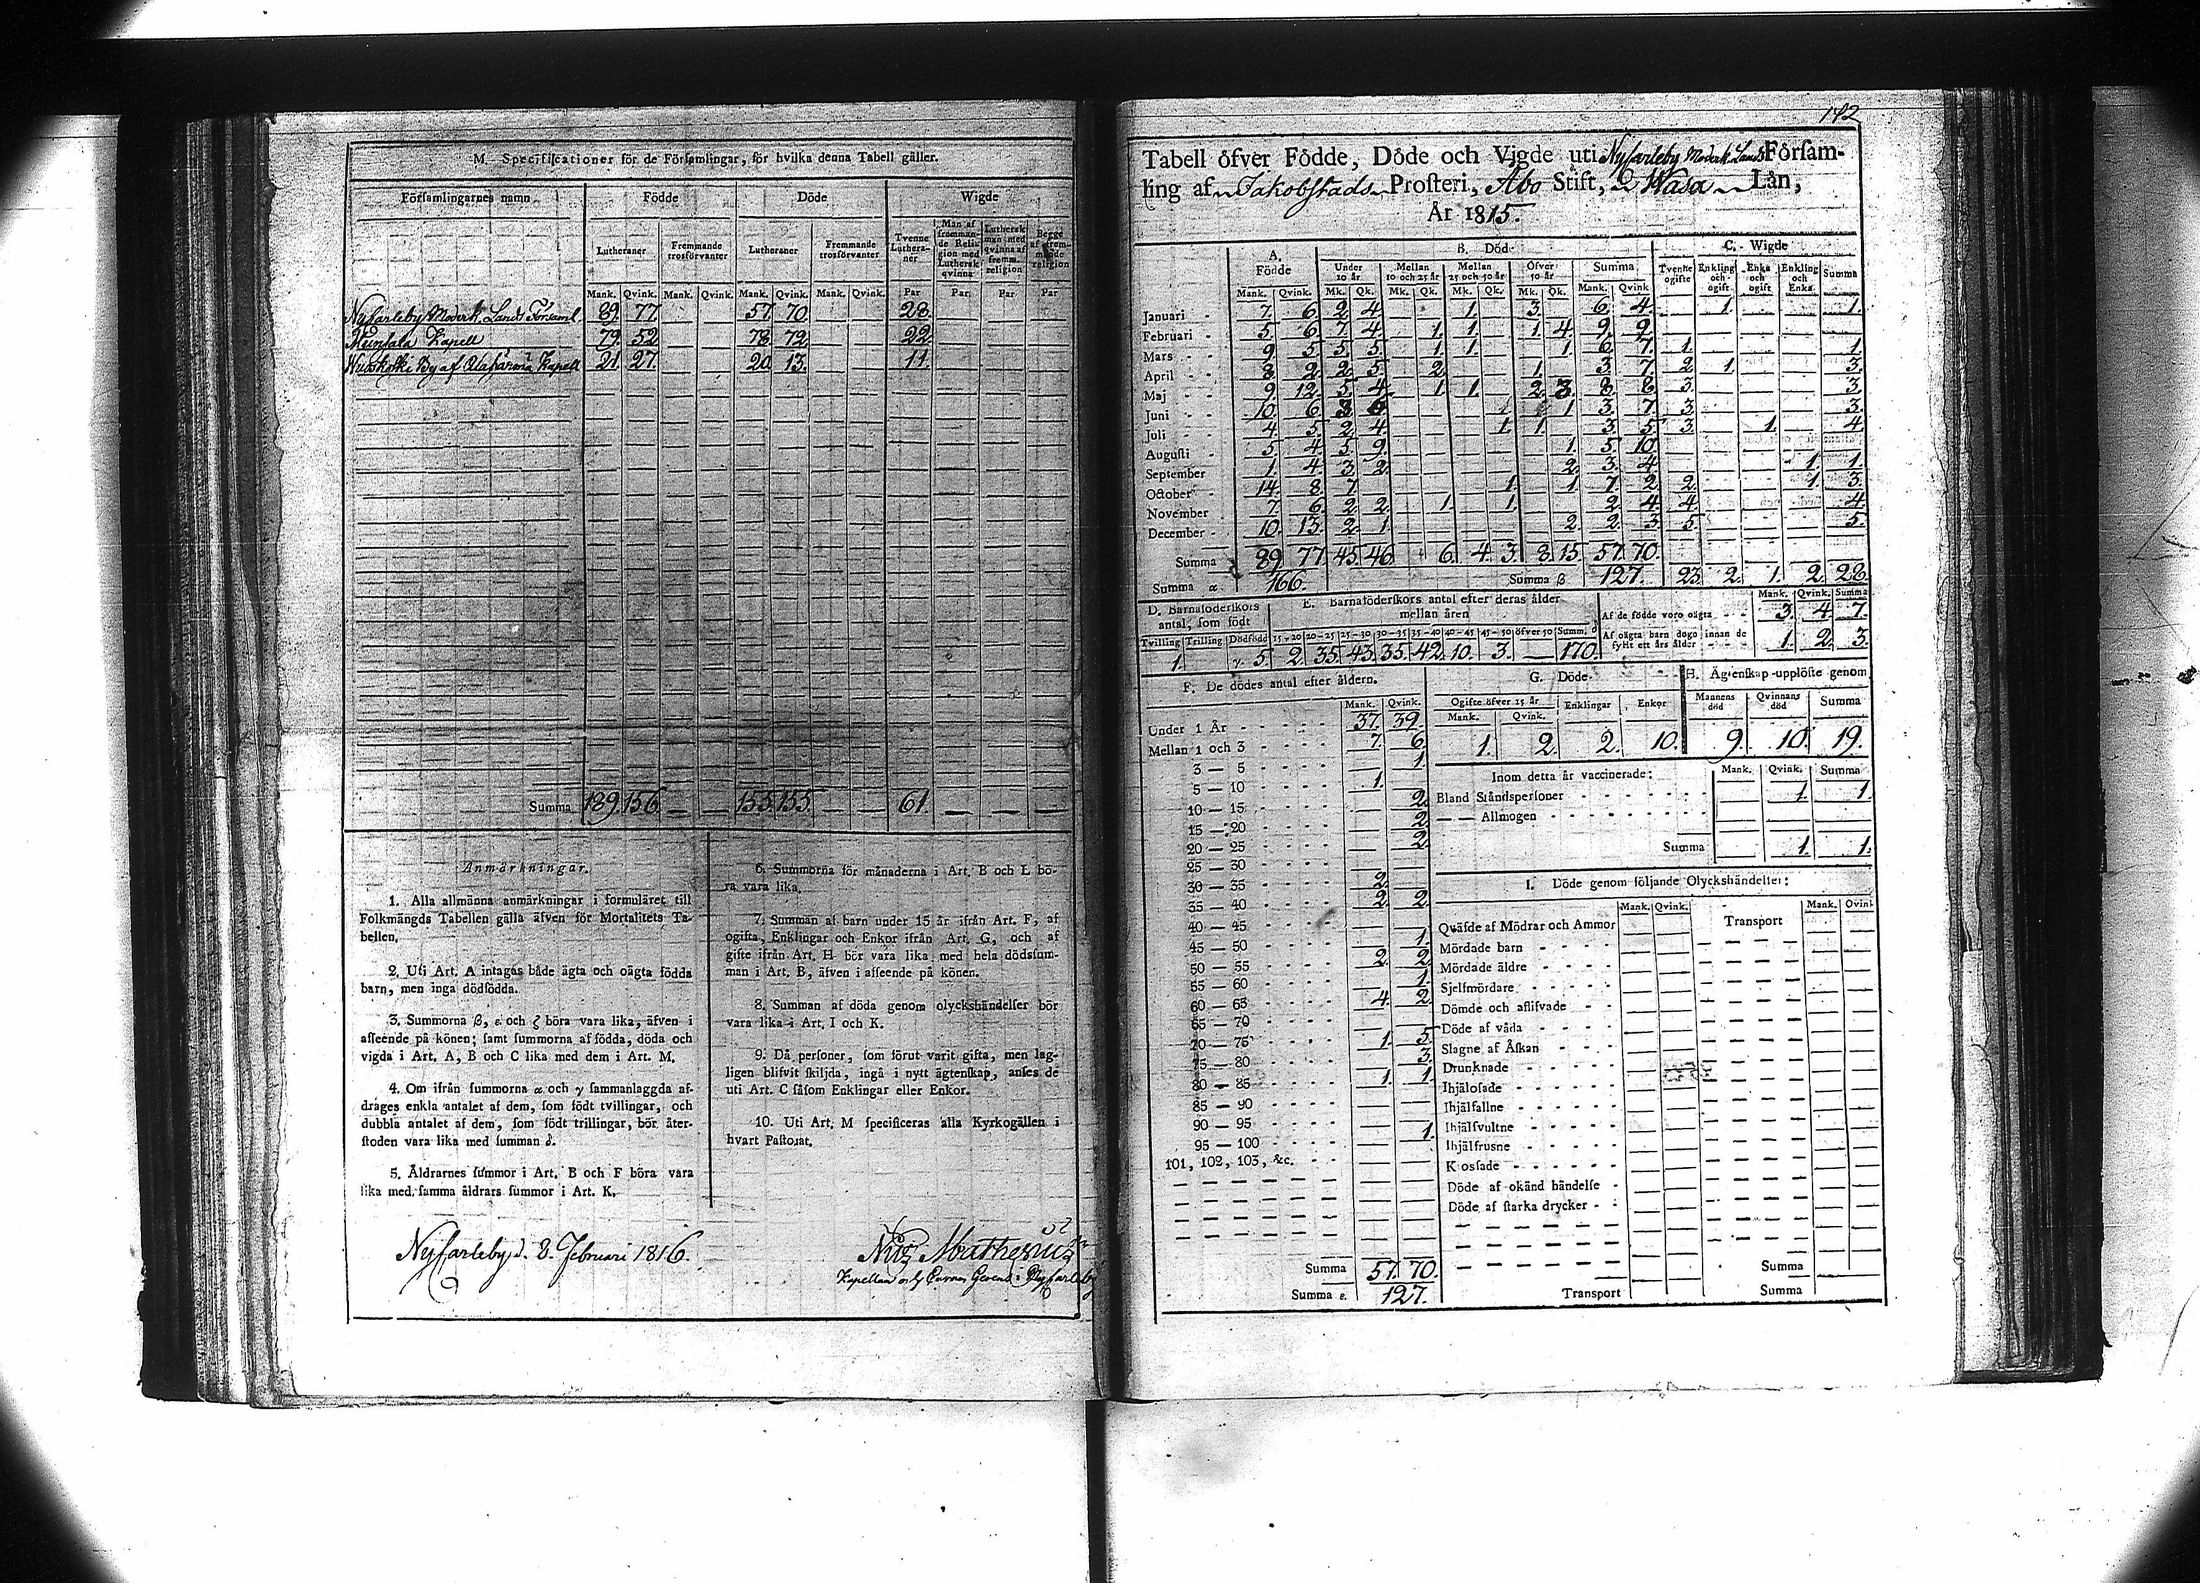 M. Specificationer för de Församlingar, för hvilka denna Tabell gäller.
Församlingarnes namn Födde Döde Wigde
Lutheraner Fremmande trosförvanter Lutheraner Fremmande trosförvanter Tvenne Lutheraner Man af fremmande Religion med Luthersk qvinna Luthersk man med qvinna af fremm. religion Begge af fremmande religion
Mank. Qvink. Mank. Qvink. Mank. Qvink. Mank. Qvink. Par Par Par Par
Nyкarleby Moderk. Lands Församl. 89. 77. 57. 70. 28.
Munsala Kapell 79. 52. 78. 72. 22.
By af Alahärmä Kapell 21. 27. 20. 13. 11.
Summa 189 156 155. 155. 61.
Anmärkningar.
1. Alla allmänna anmärkningar i formuläret till
Folkmängds Tabellen gälla äfven för Mortalitets Ta-
bellen.
2. Uti Art. A intagas både ägta och oägta födda
barn, men inga dödfödda.
3. Summorna ß, ε och ζ böra vara lika, äfven i
afseende på könen; samt summorna af födda, döda och
vigda i Art. A, B och C lika med dem i Art. M.
4. Om ifrån summorna α och γ sammanlaggda af-
drages enkla antalet af dem, som födt tvillingar, och
dubbla antalet af dem, som födt trillingar, bör åter-
stoden vara lika med summan δ.
5. Åldrarnes summor i Art. B och F böra vara
lika med samma åldrars summor i Art. K.
6. Summorna för månaderna i Art. B och L bö-
ra vara lika.
7. Summan af barn under 15 år ifrån Art. F, af
ogifta, Enklingar och Enkor ifrån Art. G, och af
gifte ifrån Art. H bör vara lika med hela dödssum-
man i Art. B, äfven i afseende på könen.
8. Summan af döda genom olyckshändelser bör
vara lika i Art. I och K.
9. Då personer, som förut varit gifta, men lag-
ligen blifvit skiljda, ingå i nytt ägtenskap, anses de
uti Art. C såsom Enklingar eller Enkor.
10. Uti Art. M specificeras alla Kyrkogällen i
hvart Pastorat.
Nykarleby d. 8. Februari 1816.
Nils Mathesius
142
Tabell öfver Födde, Döde och Vigde uti Nykarleby Moderk. Lands Försam-
ling af Jakobstads Prosteri, Åbo Stift, Wasa Län,
År 1815.
A. Födde B. Död C. Wigde
Under 10 år Mellan 10 och 25 år Mellan 25 och 50 år Öfver 50 år Summa Tvenne ogifte Enkling och ogift Enka och ogift Enkling och Enka Summa
Mank. Qvink. Mk. Qk. Mk. Qk. Mk. Qk. Mk. Qk. Mank. Qvink
Januari 7. 6. 2. 4. 1. 3. 6. 4. 1. 1.
Februari 5. 6. 7. 4. 1. 1. 1. 4. 9. 9.
Mars 9. 5. 5. 5. 1. 1. 1. 6. 7. 1. 1.
April 8. 2. 2. 5. 2. 1. 3. 7. 2. 1. 3.
Maj 9. 12. 5. 4. 1. 1. 2. 3. 8. 8. 3. 3.
Juni 10. 6. 1. 3. 7. 3. 3.
Juli 4. 5. 2. 4. 1. 1. 3. 5. 3. 1. 4.
Augusti 5. 4. 5. 9. 1. 5. 10.
September 1. 4. 3. 2. 2. 3. 4. 1. 1.
October 14. 8. 7. 1. 1. 7. 2. 2. 1. 3.
November 7. 6. 2. 2. 1. 1. 2. 4. 4. 4.
December 10. 13. 2. 1. 2. 2. 3. 5. 5.
Summa 89 77 45. 46. 6. 4. 3. 8. 15. 57. 70.
Summa α 166. Summa ß 127. 23. 2. 1. 2. 28.
D. Barnaföderskors antal, som födt
Tvilling Trilling Dödfödd
1. γ. 5.
E. Barnaföderskors antal efter deras ålder mellan åren
15-20 20-25 25-30 30-35 35-40 40-45 45-50 öfver 50 Summ. δ
2. 35. 43. 35. 42. 10. 3. — 170.
Mank. Qvink. Summa
Af de födde voro oägta 3. 4. 7.
Af oägta barn dogo innan de fyllt ett års ålder 1. 2. 3.
F. De dödes antal efter åldern.
Mank. Qvink.
Under 1 År 37. 39.
Mellan 1 och 3 7. 6.
3 — 5 1.
5 — 10 1.
10 — 15 2.
15 — 20 2.
20 — 25 2.
25 — 30
30 — 35 2.
35 — 40 2. 2.
40 — 45
45 — 50 1.
50 — 55 2. 2.
55 — 60 1.
60 — 65 4. 2.
65 — 70
70 — 75 1. 5.
75 — 80 3.
80 — 85 1. 1.
85 — 90
90 — 95
95 — 100 1.
101, 102, 103, &c.
Summa 57. 70.
Summa ε. 127.
G. Döde
Ogifte öfver 15 år Enklingar Enkor
Mank. Qvink.
1. 2. 2. 10.
H. Ägtenskap upplöste genom
Mannens död Qvinnans död Summa
9. 10. 19.
Inom detta år vaccinerade: Mank. Qvink. Summa
Bland Ståndspersoner 1. 1.
— — Allmogen
Summa 1. 1.
I. Döde genom följande Olyckshändelser:
Mank. Qvink. Transport Mank. Qvink
Qväfde af Mödrar och Ammor
Mördade barn
Mördade äldre
Sjelfmördare
Dömde och aflifvade
Döde af våda
Slagne af Åskan
Drunknade
Ihjälosade
Ihjälfallne
Ihjälsvultne
Ihjälfrusne
Kossade
Döde af okänd händelse
Döde af starka drycker
Summa
Transport Summa